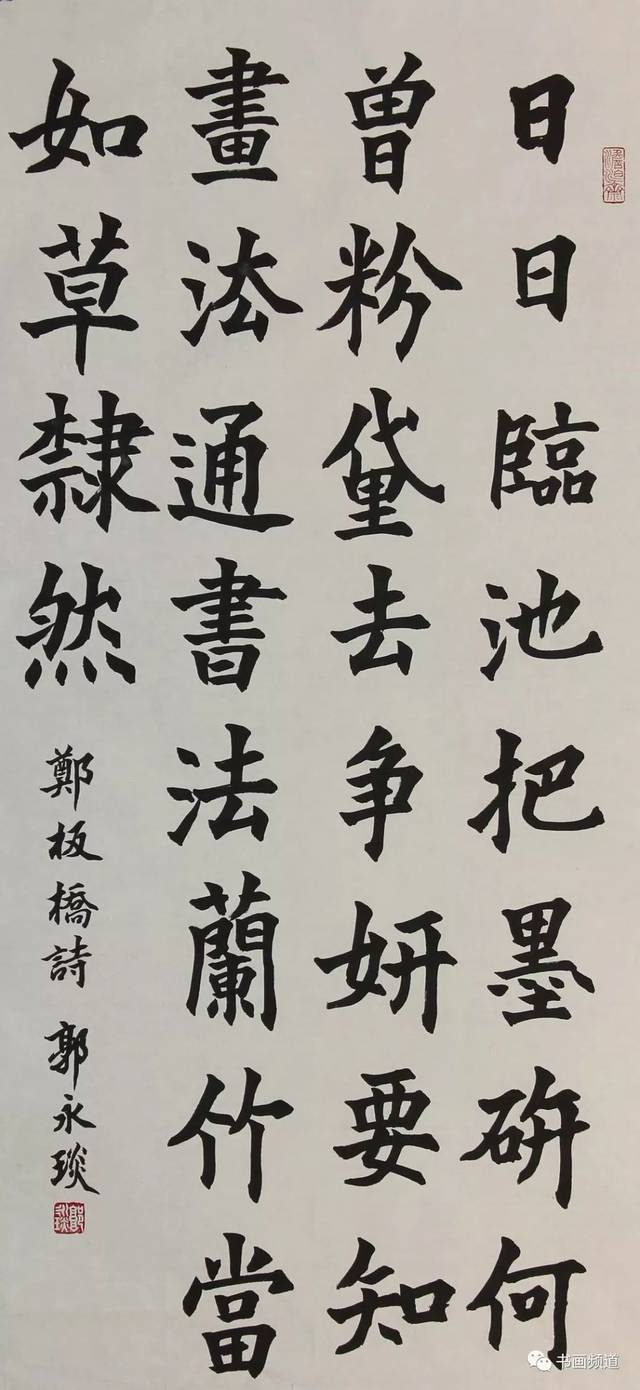 日日臨池把墨研何
曾粉黛去争妍要知
畫法通書法蘭竹當
如草隸然
鄭板橋詩 郭永琰
书画频道